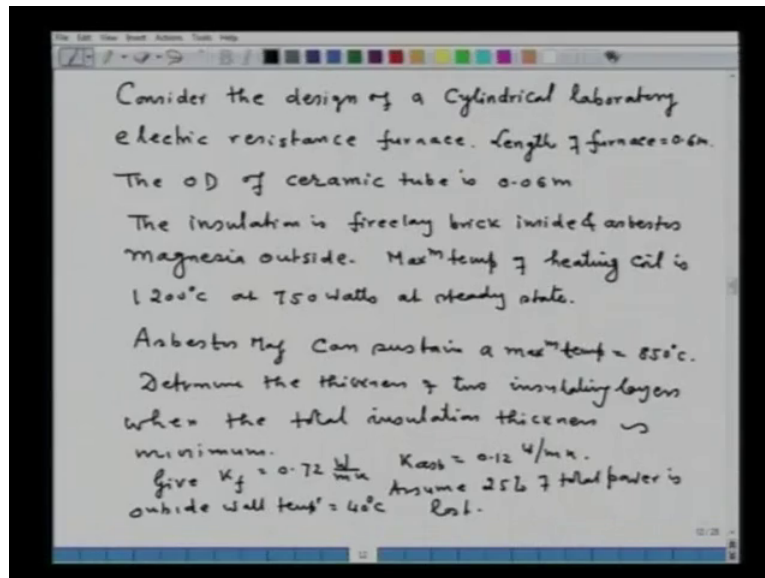 File Edit View Insert Actions Tools Help
Consider the design of a Cylindrical laboratory
electric resistance furnace. Length of furnace = 0.6m.
The OD of ceramic tube is 0.06m
The insulation is fireclay brick inside & asbestos
magnesia outside. Maxm temp of heating coil is
1200°C at 750 watts at steady state.
Asbestos Mag can sustain a maxm temp = 850°C.
Determine the thickness of two insulating layers
when the total insulation thickness is
minimum.
Give Kf = 0.72 W/mK Kasb = 0.12 W/mK.
Assume 25% of total power is
outside wall temp = 40°C lost.
12/28
12